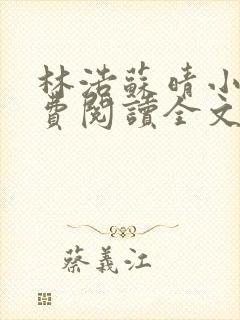 林浩蘇晴小
費閱讀全文
蔡義江